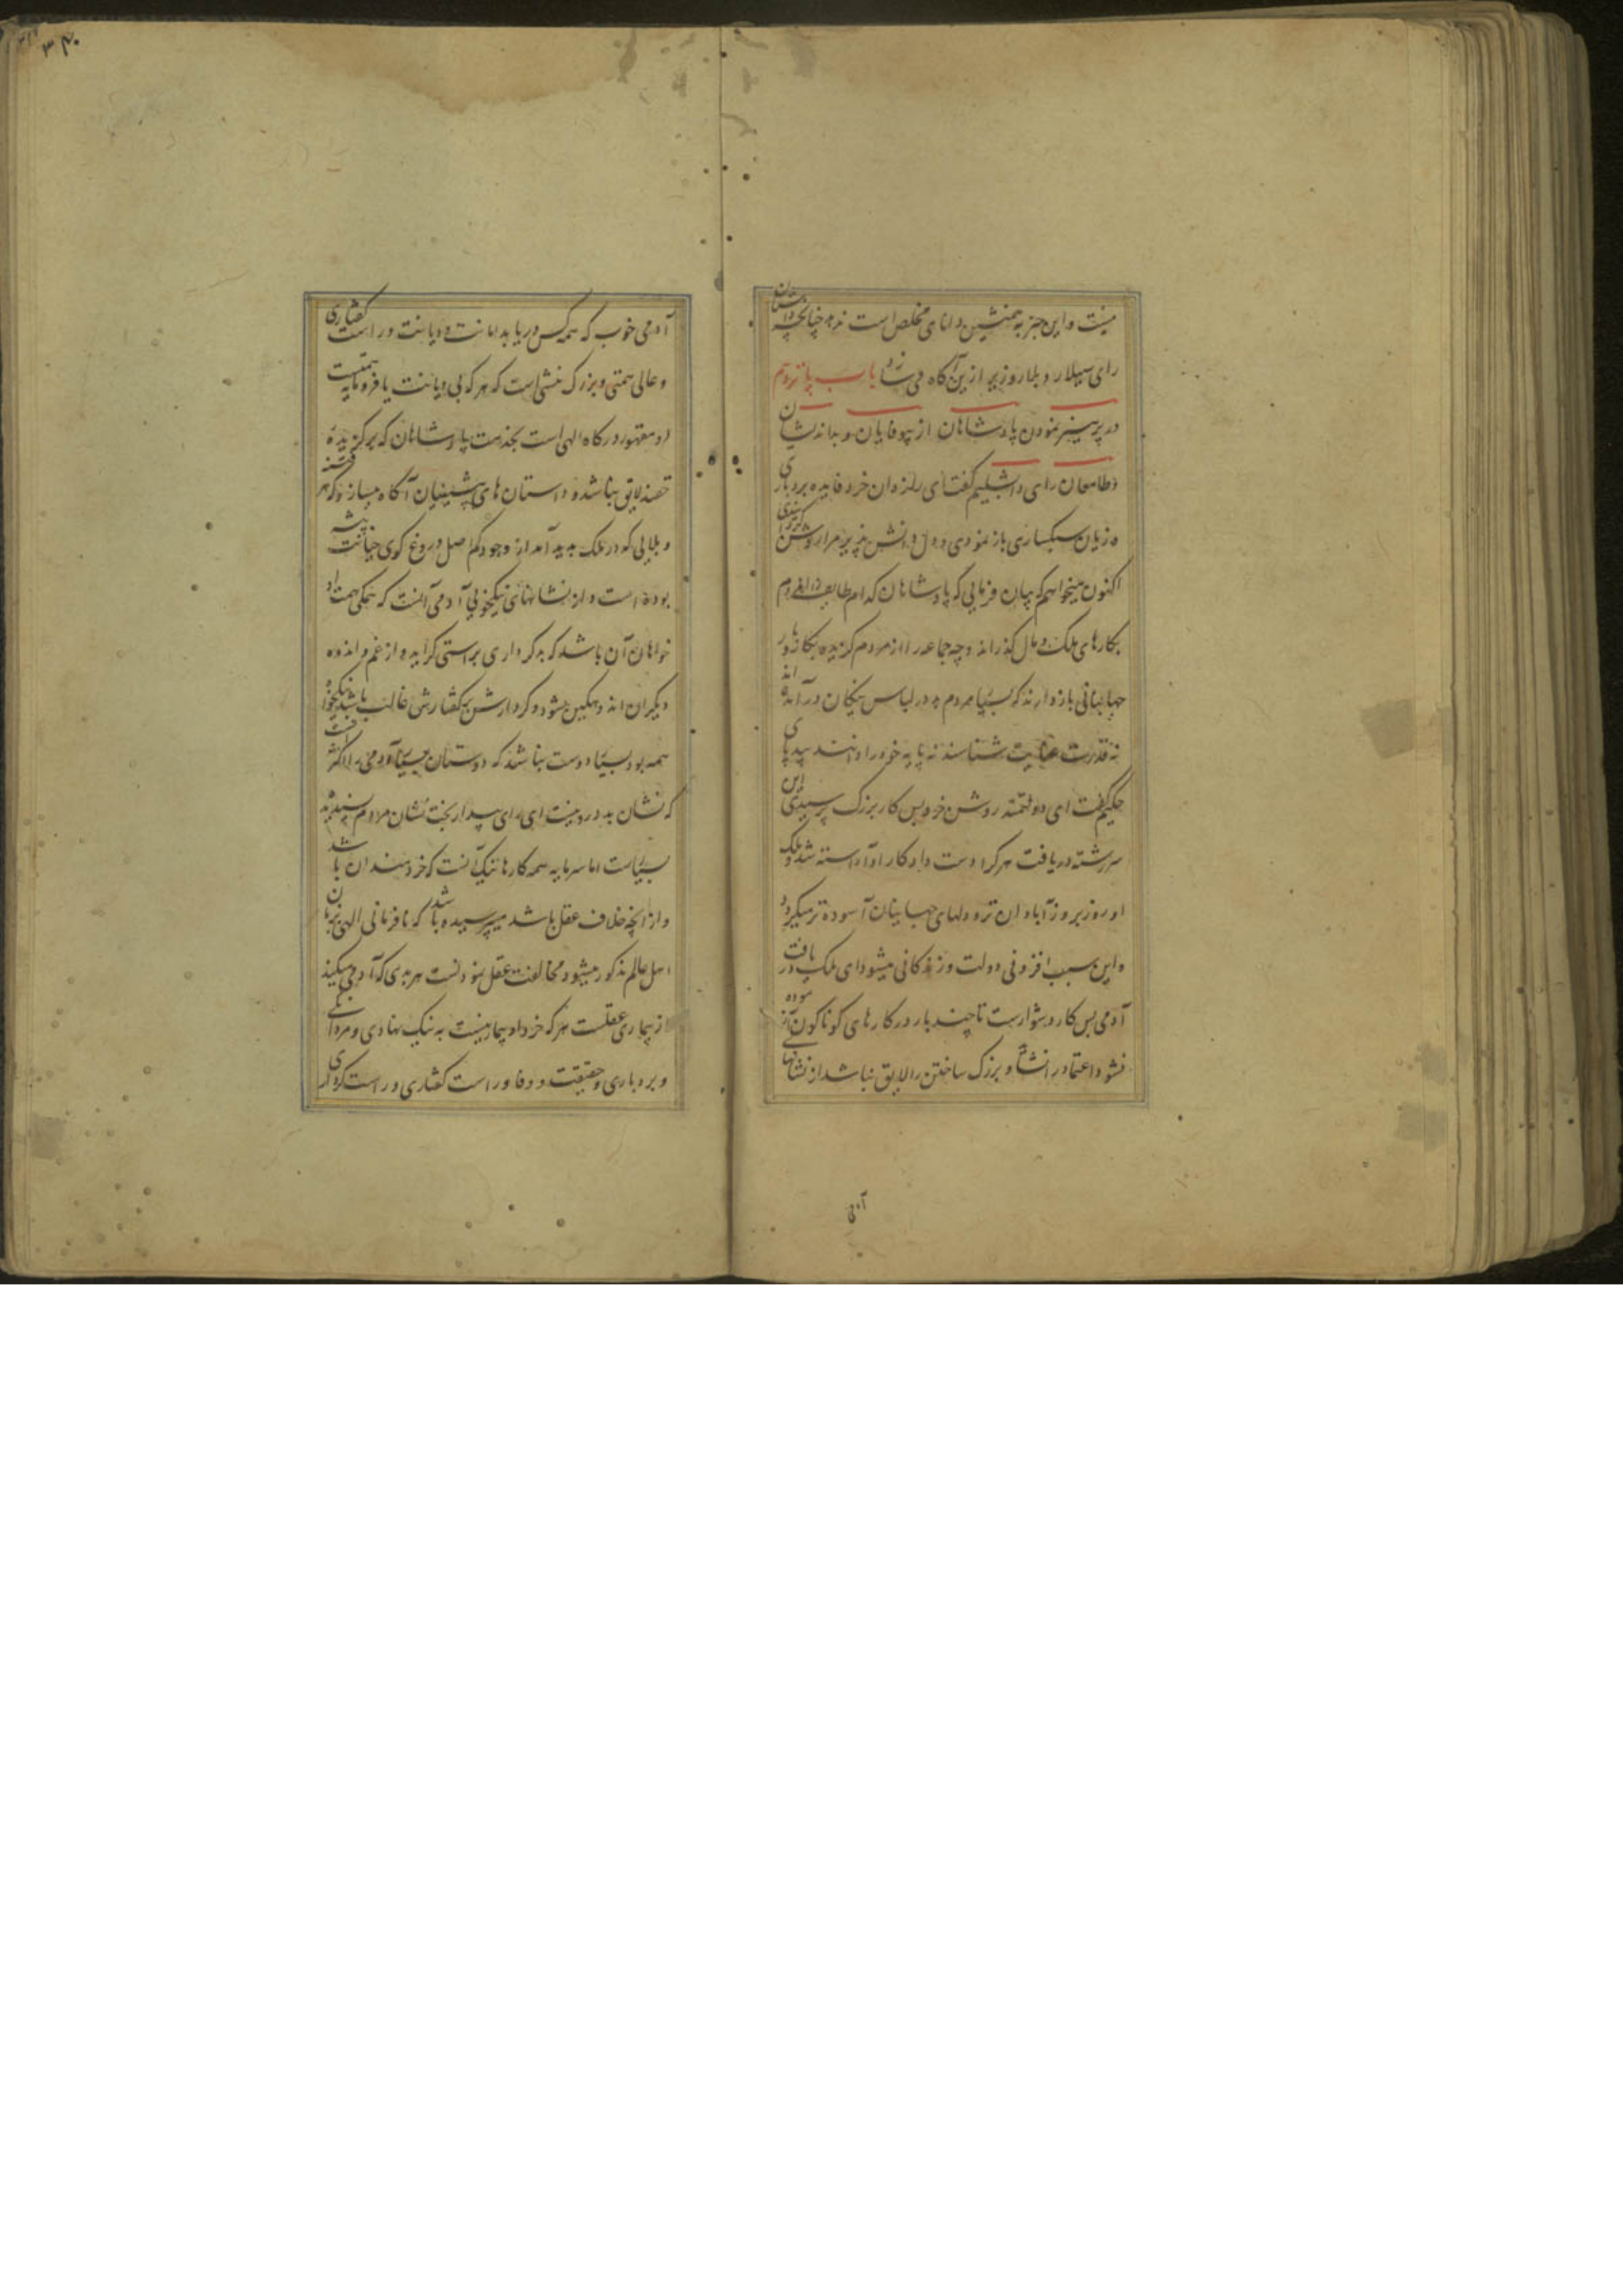 نیست و این جز به همنشین دانای مخلص است ندهد چنانچه داستان
رای سیلار و بلار وزیر ازین آگاه می سازد باب پانزدهم
در پرهیز نمودن پادشاهان از بیوفایان و بداندیشان
و طامعان رای دابشلیم گفت ای رازدان خرد فایده بردباری
و زیان سبکساری باز نمودی و دل دانش پذیر مرا روشن
اکنون میخواهم که بیان فرمایی که پادشاهان کدام طایفه از مردم
بکارهای ملک و مال گذرانند و چه جماعه را از مردم گزیده بکار
جهانبانی باز دارند که بسیار مردم بد در لباس نیکان درآمده اند
نه قدرت عنایت شناسند نه پایه خود را دانند بیدپای
حکیم گفت ای دولتمند روشن خرد بس کار بزرگ پرسیدی این
سررشته دریافت هر کرا دست داد کار او آراسته شد و ملک
او روز بروز آبادان تر و دلهای جهانیان آسوده تر میگردد
و این سبب افزونی دولت و زندگانی میشود ای ملک دریافت
آدمی بس کار دشوارست تا چند بار در کارهای گوناگون آزموده
نشود اعتماد را نشاید و بزرگ ساختن را لایق نباشد از نشانهای
آدمی
۳۴۰
آدمی خوب که همه کس دریابد امانت و دیانت و راست گفتاری
و عالی همتی و بزرگ منشی است که هر که بی دیانت یا فرومایه همتست
او مقهور درگاه الهی است بخدمت پادشاهان که برگزیده
لایق نباشد و داستان های پیشینیان آگاه میسازد که هر فتنه
و بلایی که در ملک پدید آمد از وجود کم اصل دروغ گوی خیانت پیشه
بوده است و از نشانهای نیکخویی آدمی آنست که همگی همت او
خواهان آن باشد که بدکرداری براستی گراید و از غم و اندوه
دیگران اندوهگین شود و کردارش بر گفتارش غالب باشد نیکخواه
همه بود بسیار دوست نباشد که دوستان بسیار آدمی را اکثر
که نشان بد درونیست ای رای بیدار بخت نشان مردم پسندیده
بسیارست اما سرمایه همه کارها نیک آنست که خردمندان باشد
و از آنچه خلاف عقل باشد میپرسیده باشد که نافرمانی الهی بزبان
اهل عالم مذکور میشود مخالفت عقل نمودنست هر بدی که آدمی میکند
از بیماری عقلست هر که خرد او بیمار نیست به نیک نهادی و مردانگی
و بردباری و حقیقت و وفا و راست گفتاری و راست کرداری